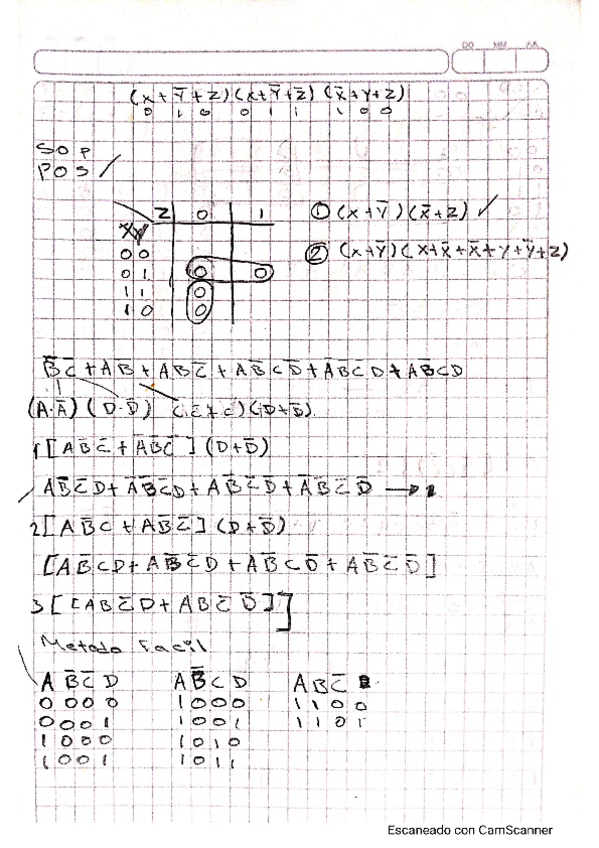 DD MM AA
(X+Y̅+Z)(X+Y̅+Z̅)(X̅+Y+Z)
0 1 0 0 1 1 1 0 0
SOP
POS ✓
Z 0 1
XY
0 0
0 1 0 0
1 1 0
1 0 0
① (X+Y̅)(X̅+Z) ✓
② (X+Y̅)(X+X̅+X̅+Y+Y̅+Z)
B̅C̅+AB̅+ABC̅+AB̅CD̅+A̅B̅C̅D+AB̅CD
(A·A̅)(D·D̅) (C̅+C)(D+D̅)
1[AB̅C̅+A̅B̅C̅](D+D̅)
AB̅C̅D+A̅B̅C̅D+AB̅C̅D̅+A̅B̅C̅D̅ → 1
2[AB̅C+AB̅C̅](D+D̅)
[AB̅CD+AB̅C̅D+AB̅CD̅+AB̅C̅D̅]
3[[ABC̅D+ABC̅D̅]]
Metodo Facil
A B̅C̅ D A B̅ C D A B C̅
0 0 0 0 1 0 0 0 1 1 0 0
0 0 0 1 1 0 0 1 1 1 0 1
1 0 0 0 1 0 1 0
1 0 0 1 1 0 1 1
Escaneado con CamScanner